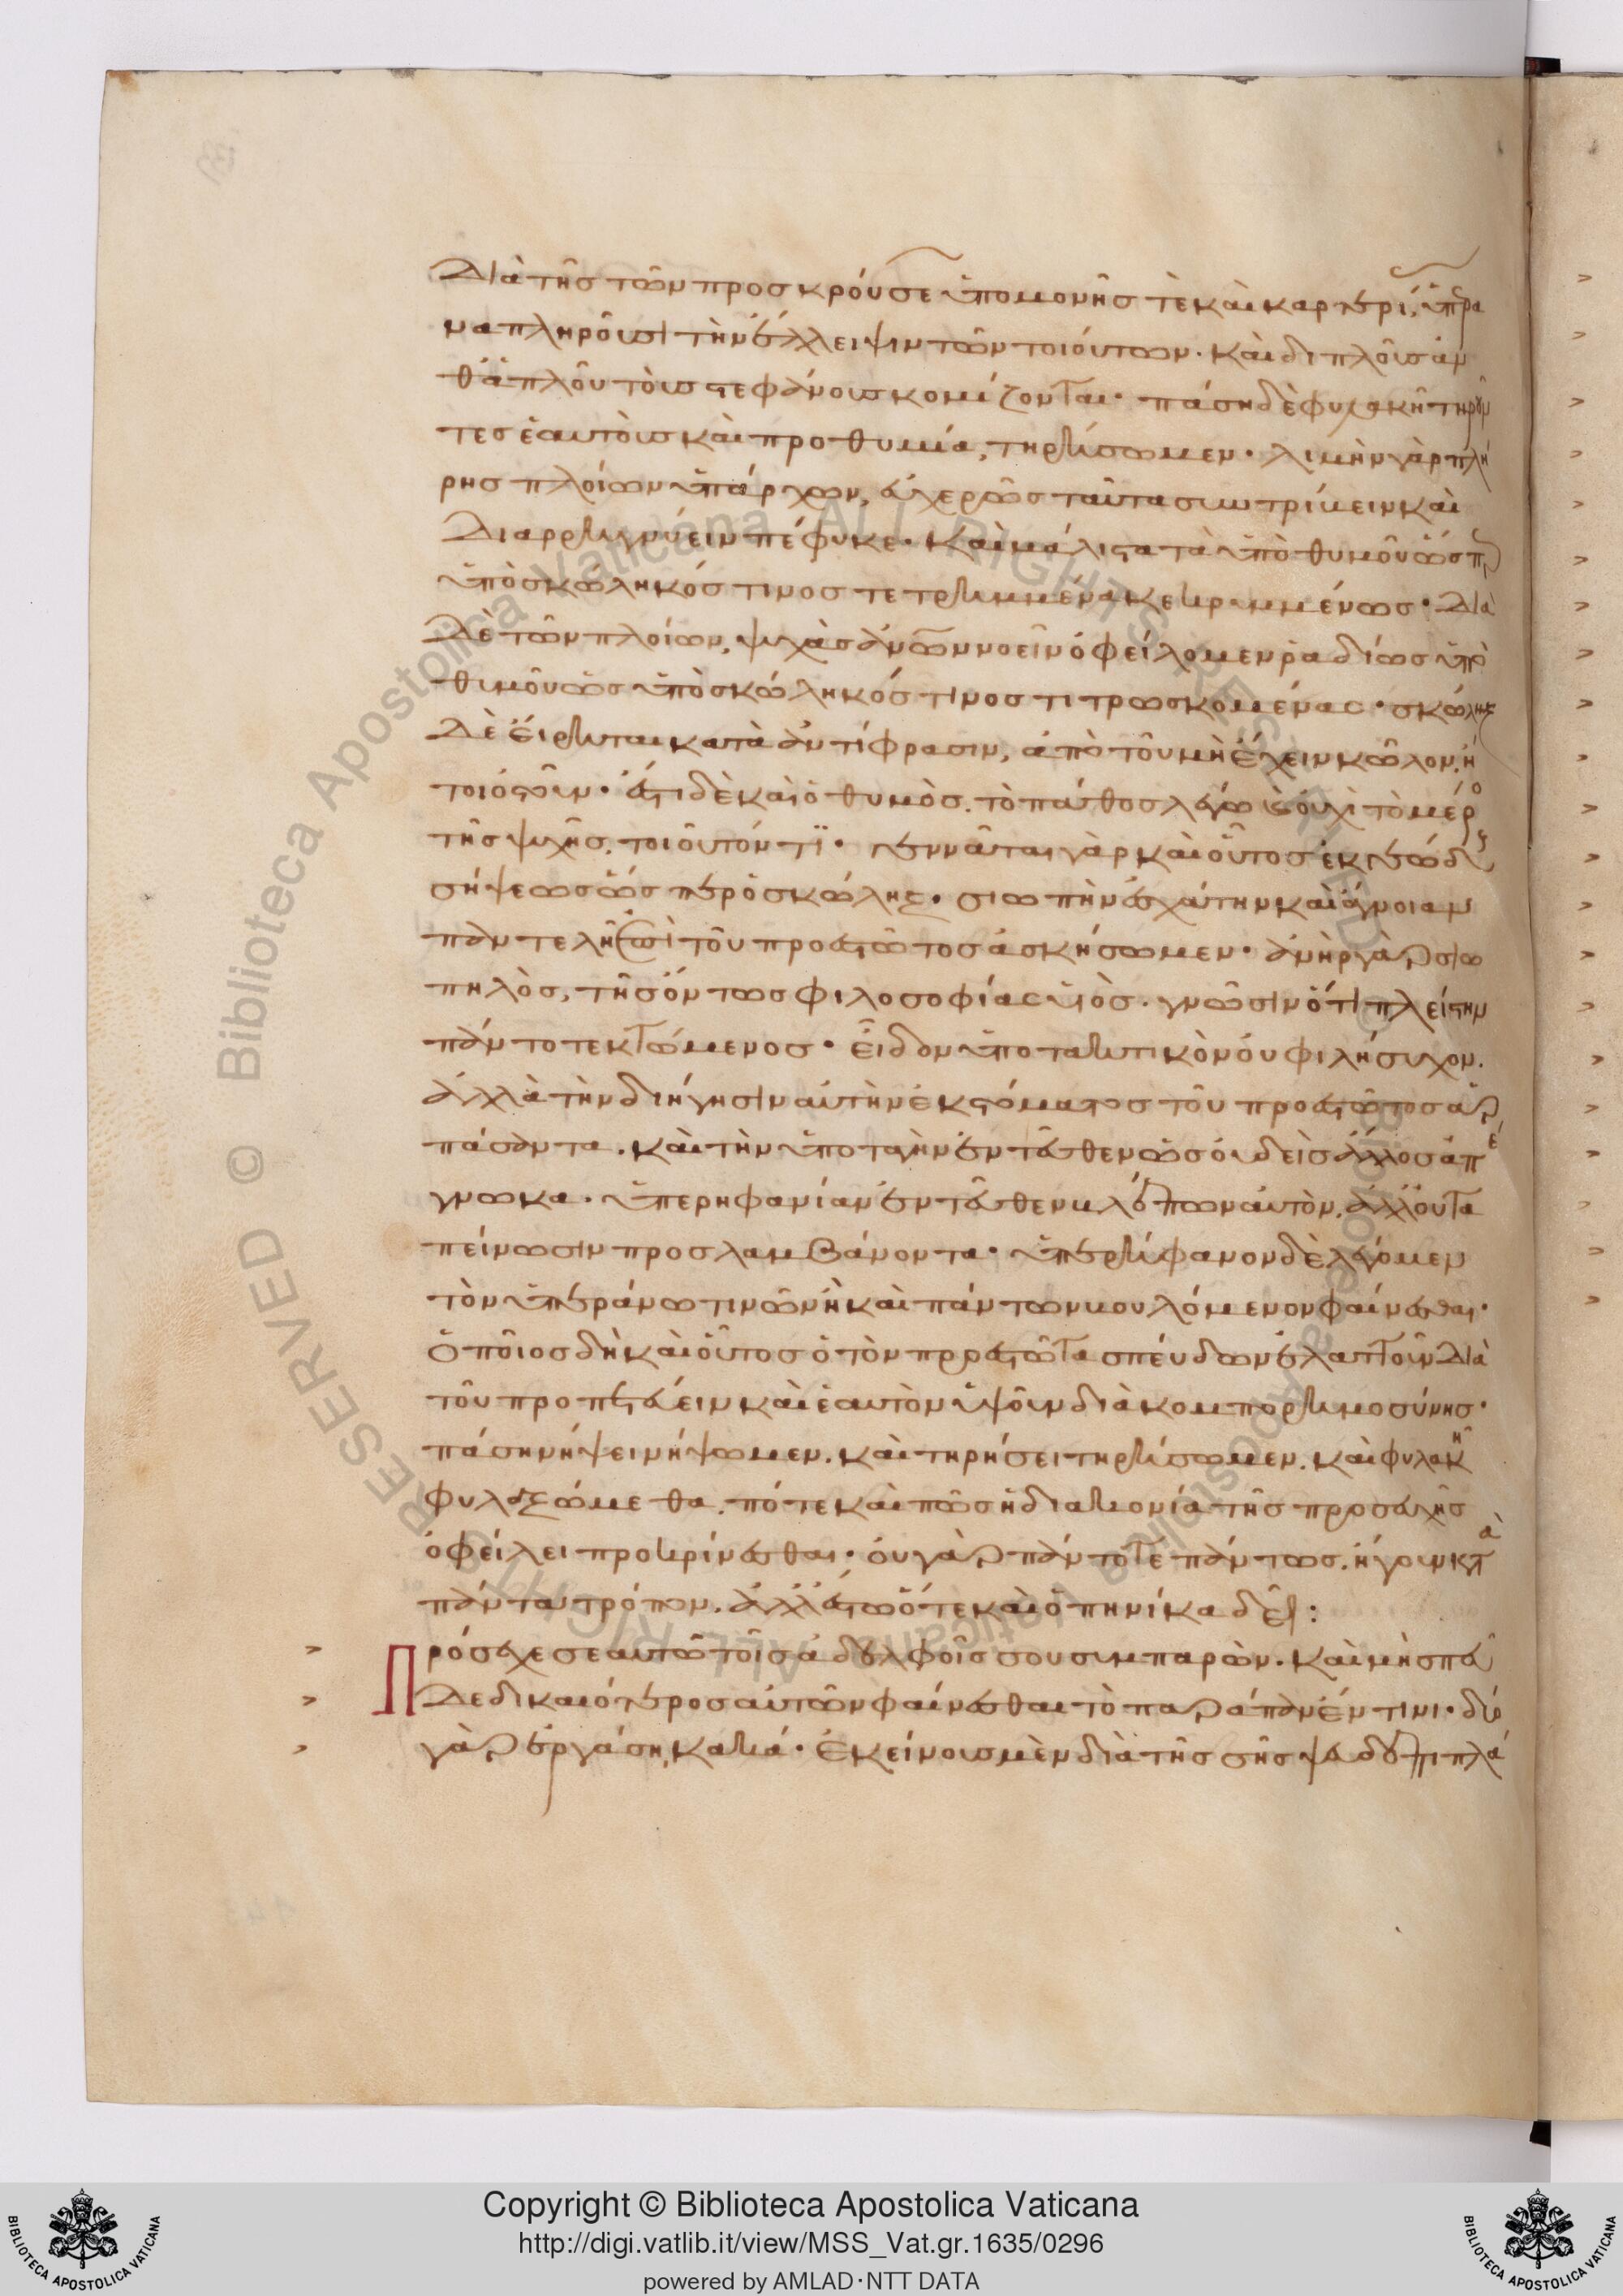 διὰ τῆς τῶν προσκρούσε ὑπομονῆς τὲ καὶ καρτερί,
ναπληροῦσι τὴν ἔλλειψιν των τοιούτων. καὶ διπλοῦς ἀν
θἁπλοῦ τοὺς στεφάνους κομίζονται. πάση δὲ φυλακῆ τηροῦν
τες ἑαυτοὺς καὶ προθυμία, τηρήσωμεν. λιμὴν γὰρ πλή
ρης πλοίων ὑπάρχων, εὐχερῶς ταῦτα συντρίβειν καὶ
διαρρηγνύειν πέφυκε. καὶ μάλιστα τὰ ὑπὸ θυμοῦ ὥσπερ
ὑπὸ σκώληκός τινος τετρημμένα κεκρυμμένως. διὰ
δὲ τῶν πλοίων, ψυχὰς ἀνων νοεῖν ὀφείλομεν ῥαδίως ὑπὸ
θυμοῦ ὡς ὑπὸ σκώληκός τινος τιτρωσκομένας. σκώληξ
δὲ εἴρηται κατὰ ἀντίφρασιν, ἀπὸ τοῦ μὴ ἔχειν κῶλον, ἢ
τοι ὀστοῦν. ἔστι δὲ καὶ ὁ θυμὸς, τὸ πάθος λέγω οὐχὶ τὸ μέρος
τῆς ψυχῆς, τοιοῦτόν τι. γεννᾶται γὰρ καὶ οὗτος ἐκ
σήψεως ὥσπερ ὁ σκώληξ. σιωπὴν ἐσχάτην καὶ ἄγνοιαν
παντελῆ ἐπὶ τοῦ προεστῶτος ἀσκήσωμεν. ἀνὴρ γὰρ σιω
πηλὸς, τῆς ὄντως φιλοσοφίας υἱὸς. γνῶσιν ὅτι πλείστην
πάντοτε κτώμενος. εἶδον ὑποτακτικὸν οὐ φιλήσυχον.
ἀλλὰ τὴν διήγησιν αὐτὴν ἐκ στόματος τοῦ προεστῶτος ἁρ
πάσαντα. καὶ τὴν ὑποταγὴν ἐντεῦθεν ὡς οὐδεὶς ἄλλος ἀπέ
γνωκα. ὑπερηφανίαν ἐντεῦθεν βλέπων αὐτὸν, ἀλλ' οὐ τα
πείνωσιν προσλαμβάνοντα. ὑπερήφανον δὲ λέγομεν
τὸν ὑπεράνω τινῶν ἢ καὶ πάντων βουλόμενον φαίνεσθαι.
ὁποῖος δὴ καὶ οὗτος ὁ τὸν προεστῶτα σπεύδων ἐλαττοῦν διὰ
τοῦ προπετεύειν καὶ ἑαυτὸν ὑψοῦν διὰ κομπορημοσύνης.
πάση νήψει νήψωμεν. καὶ τηρήσει τηρήσωμεν. καὶ φυλακῆ
φυλαξώμεθα. πότε καὶ πῶς ἡ διακονία τῆς προσευχῆς
ὀφείλει προκρίνεσθαι. οὐ γὰρ πάντοτε πάντως, ἤγουν κατὰ
πάντα τρόπον. ἀλλ' ἔστιν ὅτε καὶ ὁπηνίκα δεῖ:
Πρόσεχε σεαυτῶ τοῖς ἀδελφοῖς σου συμπαρὼν. καὶ μὴ σπεῦ
δε δικαιότερος αὐτῶν φαίνεσθαι τὸ παράπαν ἔν τινι. δύο
γὰρ ἐργάση κακά. ἐκείνους μὲν διὰ τῆς σῆς ψευδεπιπλά